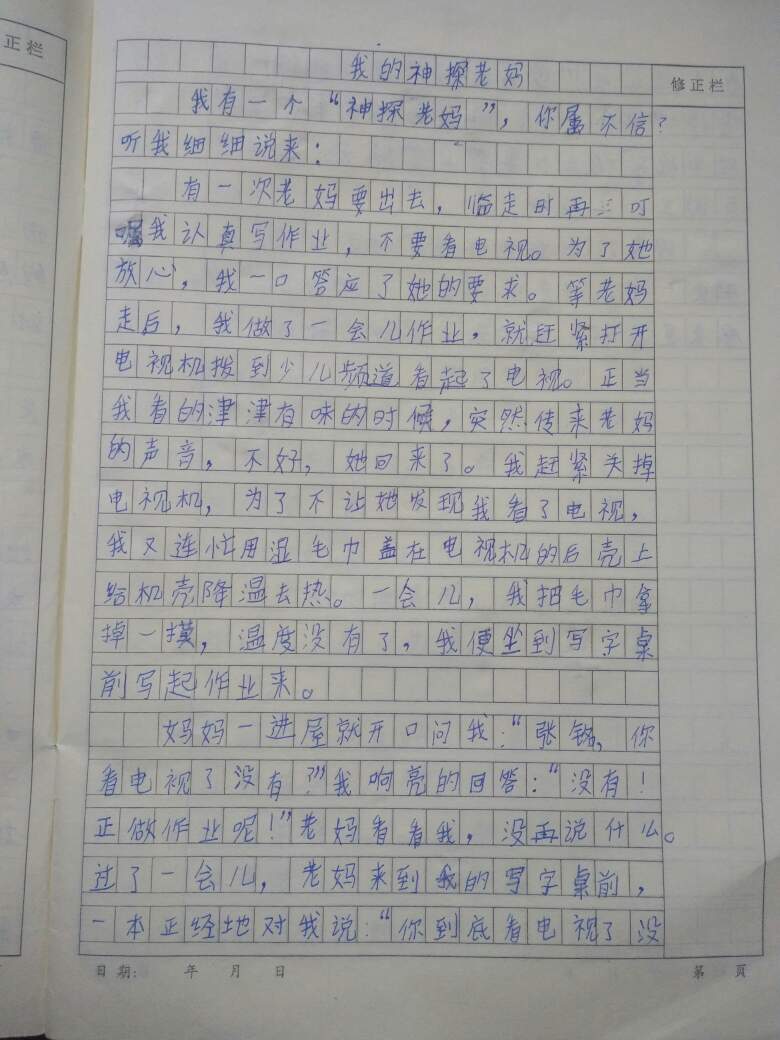 正栏
修正栏
我的神探老妈
我有一个“神探老妈”，你属不信？
听我细细说来：
有一次老妈要出去，临走时再三叮
嘱我认真写作业，不要看电视。为了她
放心，我一口答应了她的要求。等老妈
走后，我做了一会儿作业，就赶紧打开
电视机拨到少儿频道看起了电视。正当
我看的津津有味的时候，突然传来老妈
的声音，不好，她回来了。我赶紧关掉
电视机，为了不让她发现我看了电视，
我又连忙用湿毛巾盖在电视机的后壳上
给机壳降温去热。一会儿，我把毛巾拿
掉一摸，温度没有了，我便坐到写字桌
前写起作业来。
妈妈一进屋就开口问我：“张铭，你
看电视了没有？”我响亮的回答：“没有！
正做作业呢！”老妈看看我，没再说什么。
过了一会儿，老妈来到我的写字桌前，
一本正经地对我说：“你到底看电视了没
日期： 年 月 日 第 页